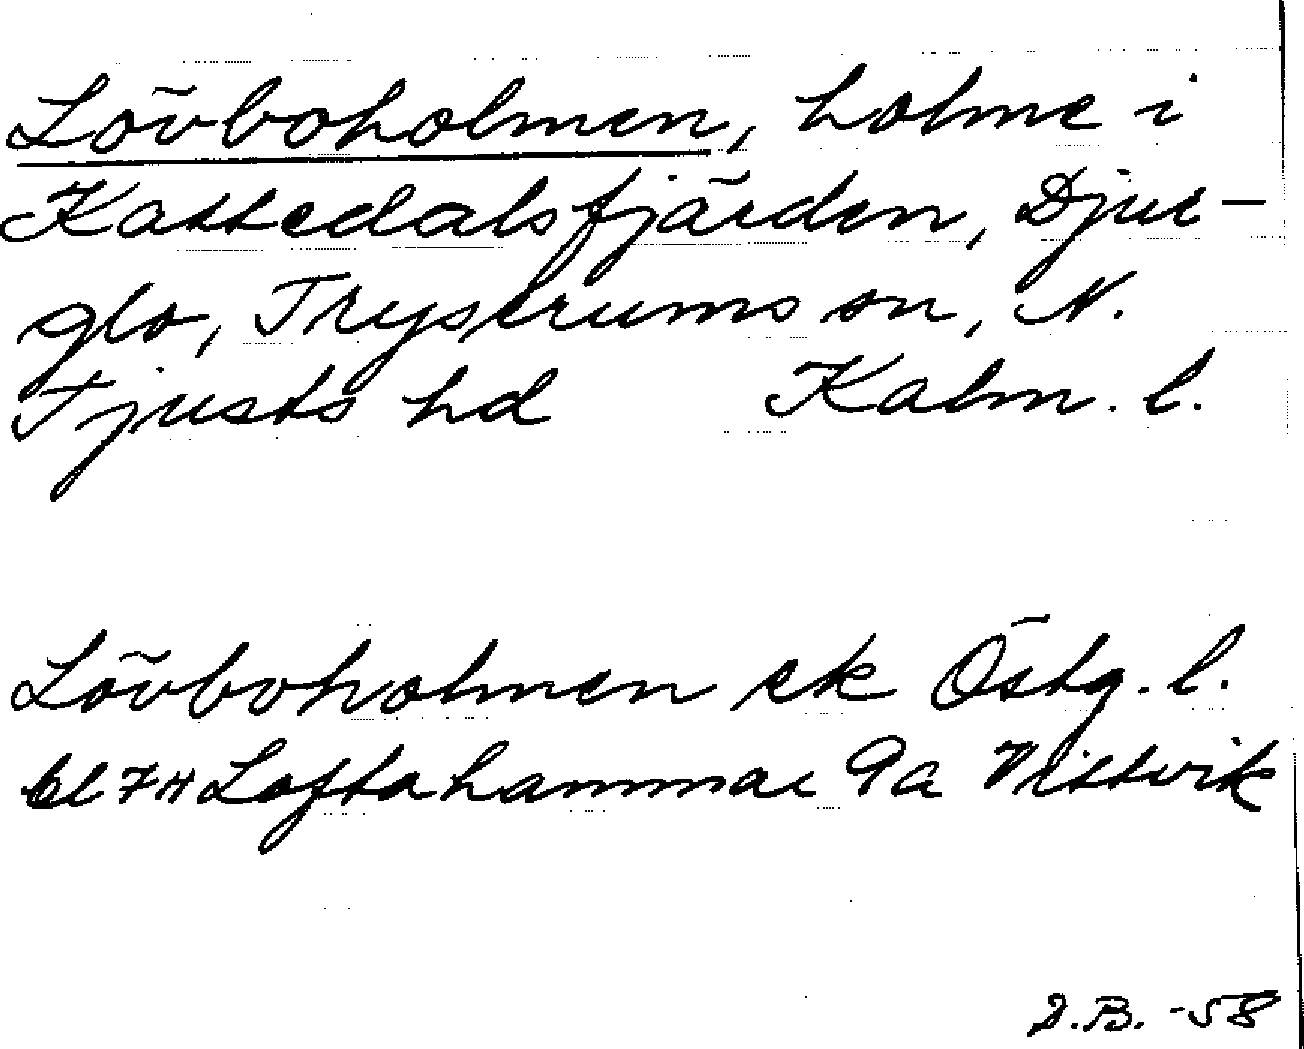 Lövboholmen, holme i
Kattedalsfjärden, Djur-
glo, Tryserums sn, N.
Tjusts hd Kalm. l.
Lövboholmen ek Östg. l.
bl 7H Loftahammar 9a Vittvik
D.B. -58